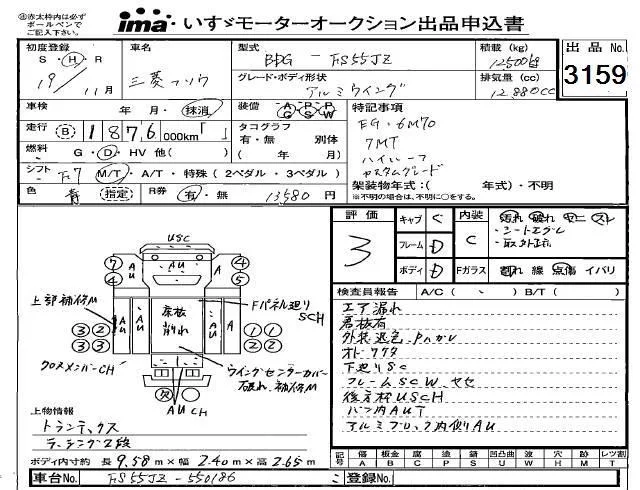 赤太枠内は必ずボールペンでご記入下さい。
ima いすゞモーターオークション出品申込書
初度登録 S・H・R 19/11月
車名 三菱フソウ
型式 BDG-FS55JZ
積載(kg) 12500kg
出品No. 3159
グレード・ボディ形状 アルミウイング
排気量(cc) 12880cc
車検 年 月・抹消
装備 A P P G S W
特記事項
走行 B 1876 000km「 」
タコグラフ 有・無 別体 ( 年 月)
EG. 6M70
7MT
ハイルーフ
カスタムグレード
燃料 G・D・HV 他( )
シフト F7 M/T・A/T・特殊(2ペダル・3ペダル)
架装物年式:( 年式)・不明
※不明の場合は、不明に○をする。
色 青 指定
R券 有・無 13580円
評価 3
キャブ C
フレーム D
ボディ D
内装 C
汚れ 破れ ヤニ スレ
Fガラス 割れ 線 点傷 イバリ
検査員報告 A/C( 、 ) B/T( )
エア漏れ
看板有
外装退色
下廻りSC
フレームSCW
バン内AUT
SCH
Fパネル廻り SCH
上部補修M
床板削れ
クロスメンバーCH
ウイングセンターカバー破れ、補修M
AUCH
上物情報
トランテックス
ラッシング2段
ボディ内寸約 長9.58m×幅2.40m×高2.65m
記号 傷A 板金B 腐C 塗P 錆S 凹凸曲U 波W 穴H 跡M レツ割T
車台No. FS55JZ-550186
登録No.